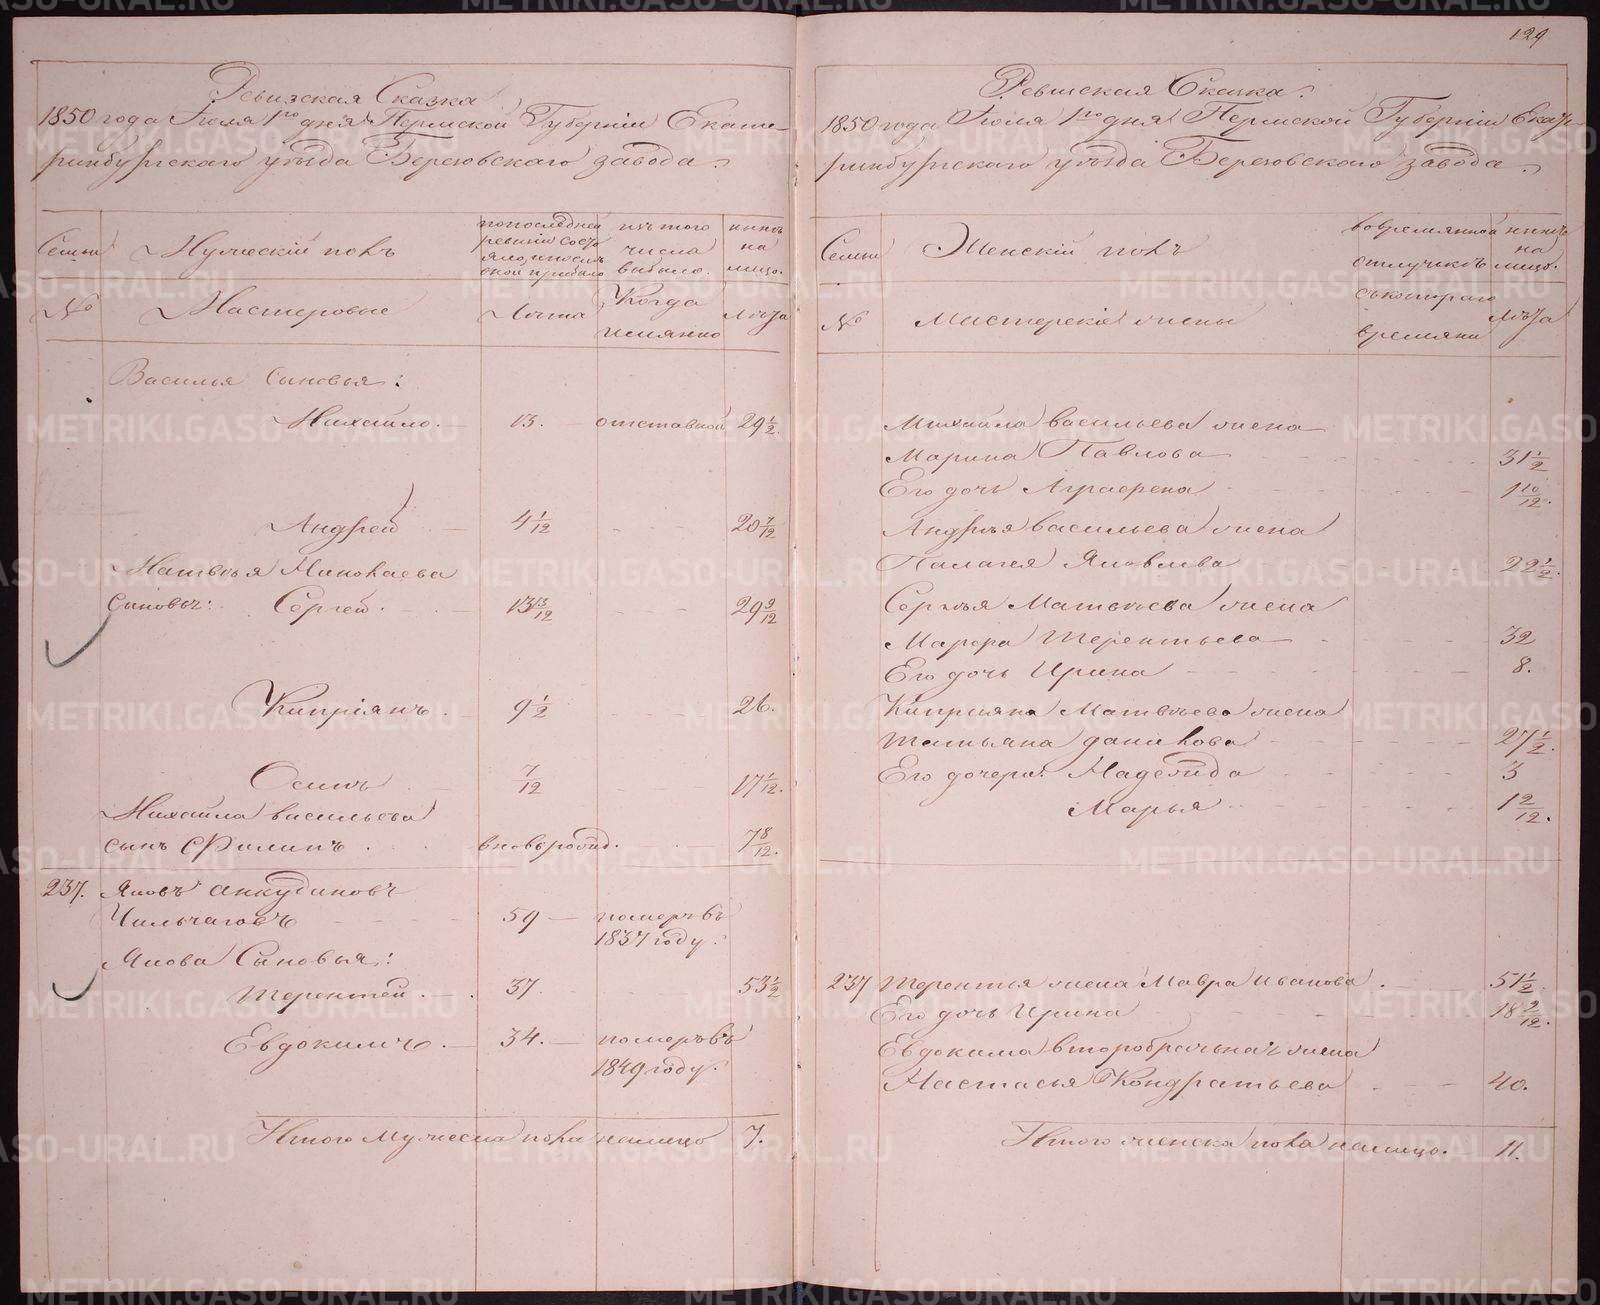 129
Ревизская Сказка
1850 года Июля 1го дня Пермской Губернии Екате-
ринбургскаго уезда Березовскаго завода.
Семьи
Мужеский полъ
по последней
ревизии состо
яло, и после
оной прибыло
изъ того
числа
выбыло.
ныне
на
лицо.
№
Мастеровые
Лета
Когда
имянно
Лета
Василья Сыновья:
Михайло. 13. отставной 29 1/2.
Андрей 4 1/12 20 7/12
Матвея Николаева
сыновья: Сергей. 29 9/12
Киприянъ. 9 1/2 26.
Осипъ 7/12 17 1/12.
Михайла Васильева
сынъ Филипъ. вновь рожд. 7 8/12.
237. Яковъ Анкудиновъ
Чильчаговъ 59 померъ въ
1837 году.
Якова Сыновья:
Терентей. 37. 53 1/2
Евдокимъ. 34. померъ въ
1849 году.
Итого мужеска пола налицо 7.
Ревизская Сказка.
1850 года Июля 1го дня Пермской Губернии Екате-
ринбургскаго уезда Березовскаго завода.
Семьи
Женский полъ
во временной
отлучке
ныне
на
лицо.
№
Мастерские жены
съ котораго
времяни
Лета
Михайла Васильева жена
Марина Павлова 31 1/2
Его дочь Аграфена 1 10/12.
Андрея Васильева жена
Палагея Яковлева 22 1/2.
Сергея Матвеева жена
Марфа Терентьева 32
Его дочь Ирина 8.
Киприяна Матвеева жена
Татьяна Данилова 27 1/2.
Его дочери: Надежда 3
Марья 1 2/12.
237 Терентья жена Мавра Иванова. 51 1/2
Его дочь Ирина 18 2/12.
Евдокима второбрачная жена
Настасья Кондратьева 40.
Итого женска пола налицо. 11.
METRIKI.GASO-URAL.RU